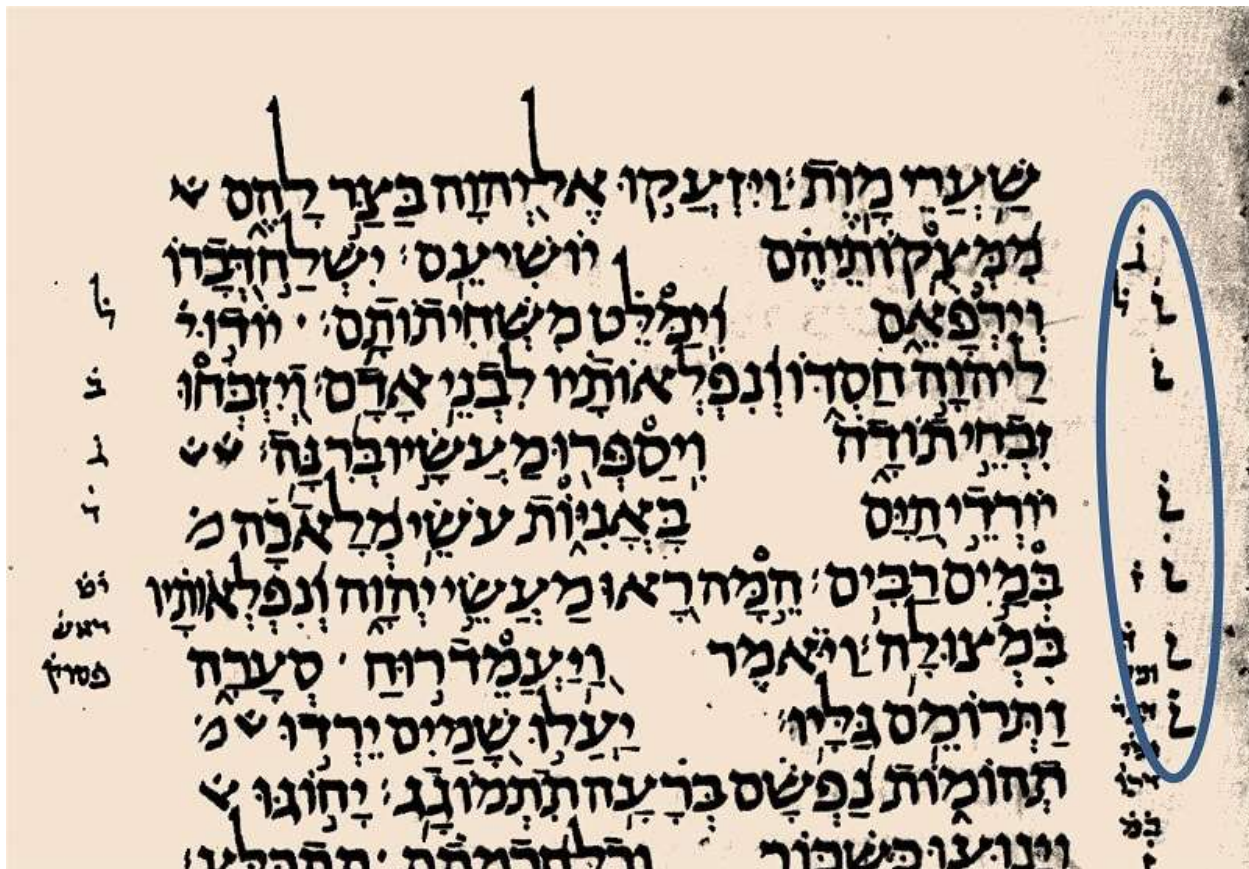 שַׁעֲרֵי מָוֶת׃ וַיִּזְעֲקוּ אֶל־יְהוָה בַּצַּר לָהֶם
מִמְּצֻקוֹתֵיהֶם יוֹשִׁיעֵם׃ יִשְׁלַח דְּבָרוֹ
ג
וְיִרְפָּאֵם וִימַלֵּט מִשְּׁחִיתוֹתָם׃ יוֹדוּ
ל
לַיהוָה חַסְדּוֹ וְנִפְלְאוֹתָיו לִבְנֵי אָדָם׃ וְיִזְבְּחוּ
ב
זִבְחֵי תוֹדָה וִיסַפְּרוּ מַעֲשָׂיו בְּרִנָּה׃
ג
יוֹרְדֵי הַיָּם בָּאֳנִיּוֹת עֹשֵׂי מְלָאכָה מ
ד
בְּמַיִם רַבִּים׃ הֵמָּה רָאוּ מַעֲשֵׂי יְהוָה וְנִפְלְאוֹתָיו
יט
וראש
בִּמְצוּלָה׃ וַיֹּאמֶר וַיַּעֲמֵד רוּחַ סְעָרָה
פסוק
וַתְּרוֹמֵם גַּלָּיו׃ יַעֲלוּ שָׁמַיִם יֵרְדוּ מ
תְהוֹמוֹת נַפְשָׁם בְּרָעָה תִתְמוֹגָג׃ יָחוֹגּוּ
וְיָנוּעוּ כַּשִּׁכּוֹר וְכָל־חָכְמָתָם תִּתְבַּלָּע׃